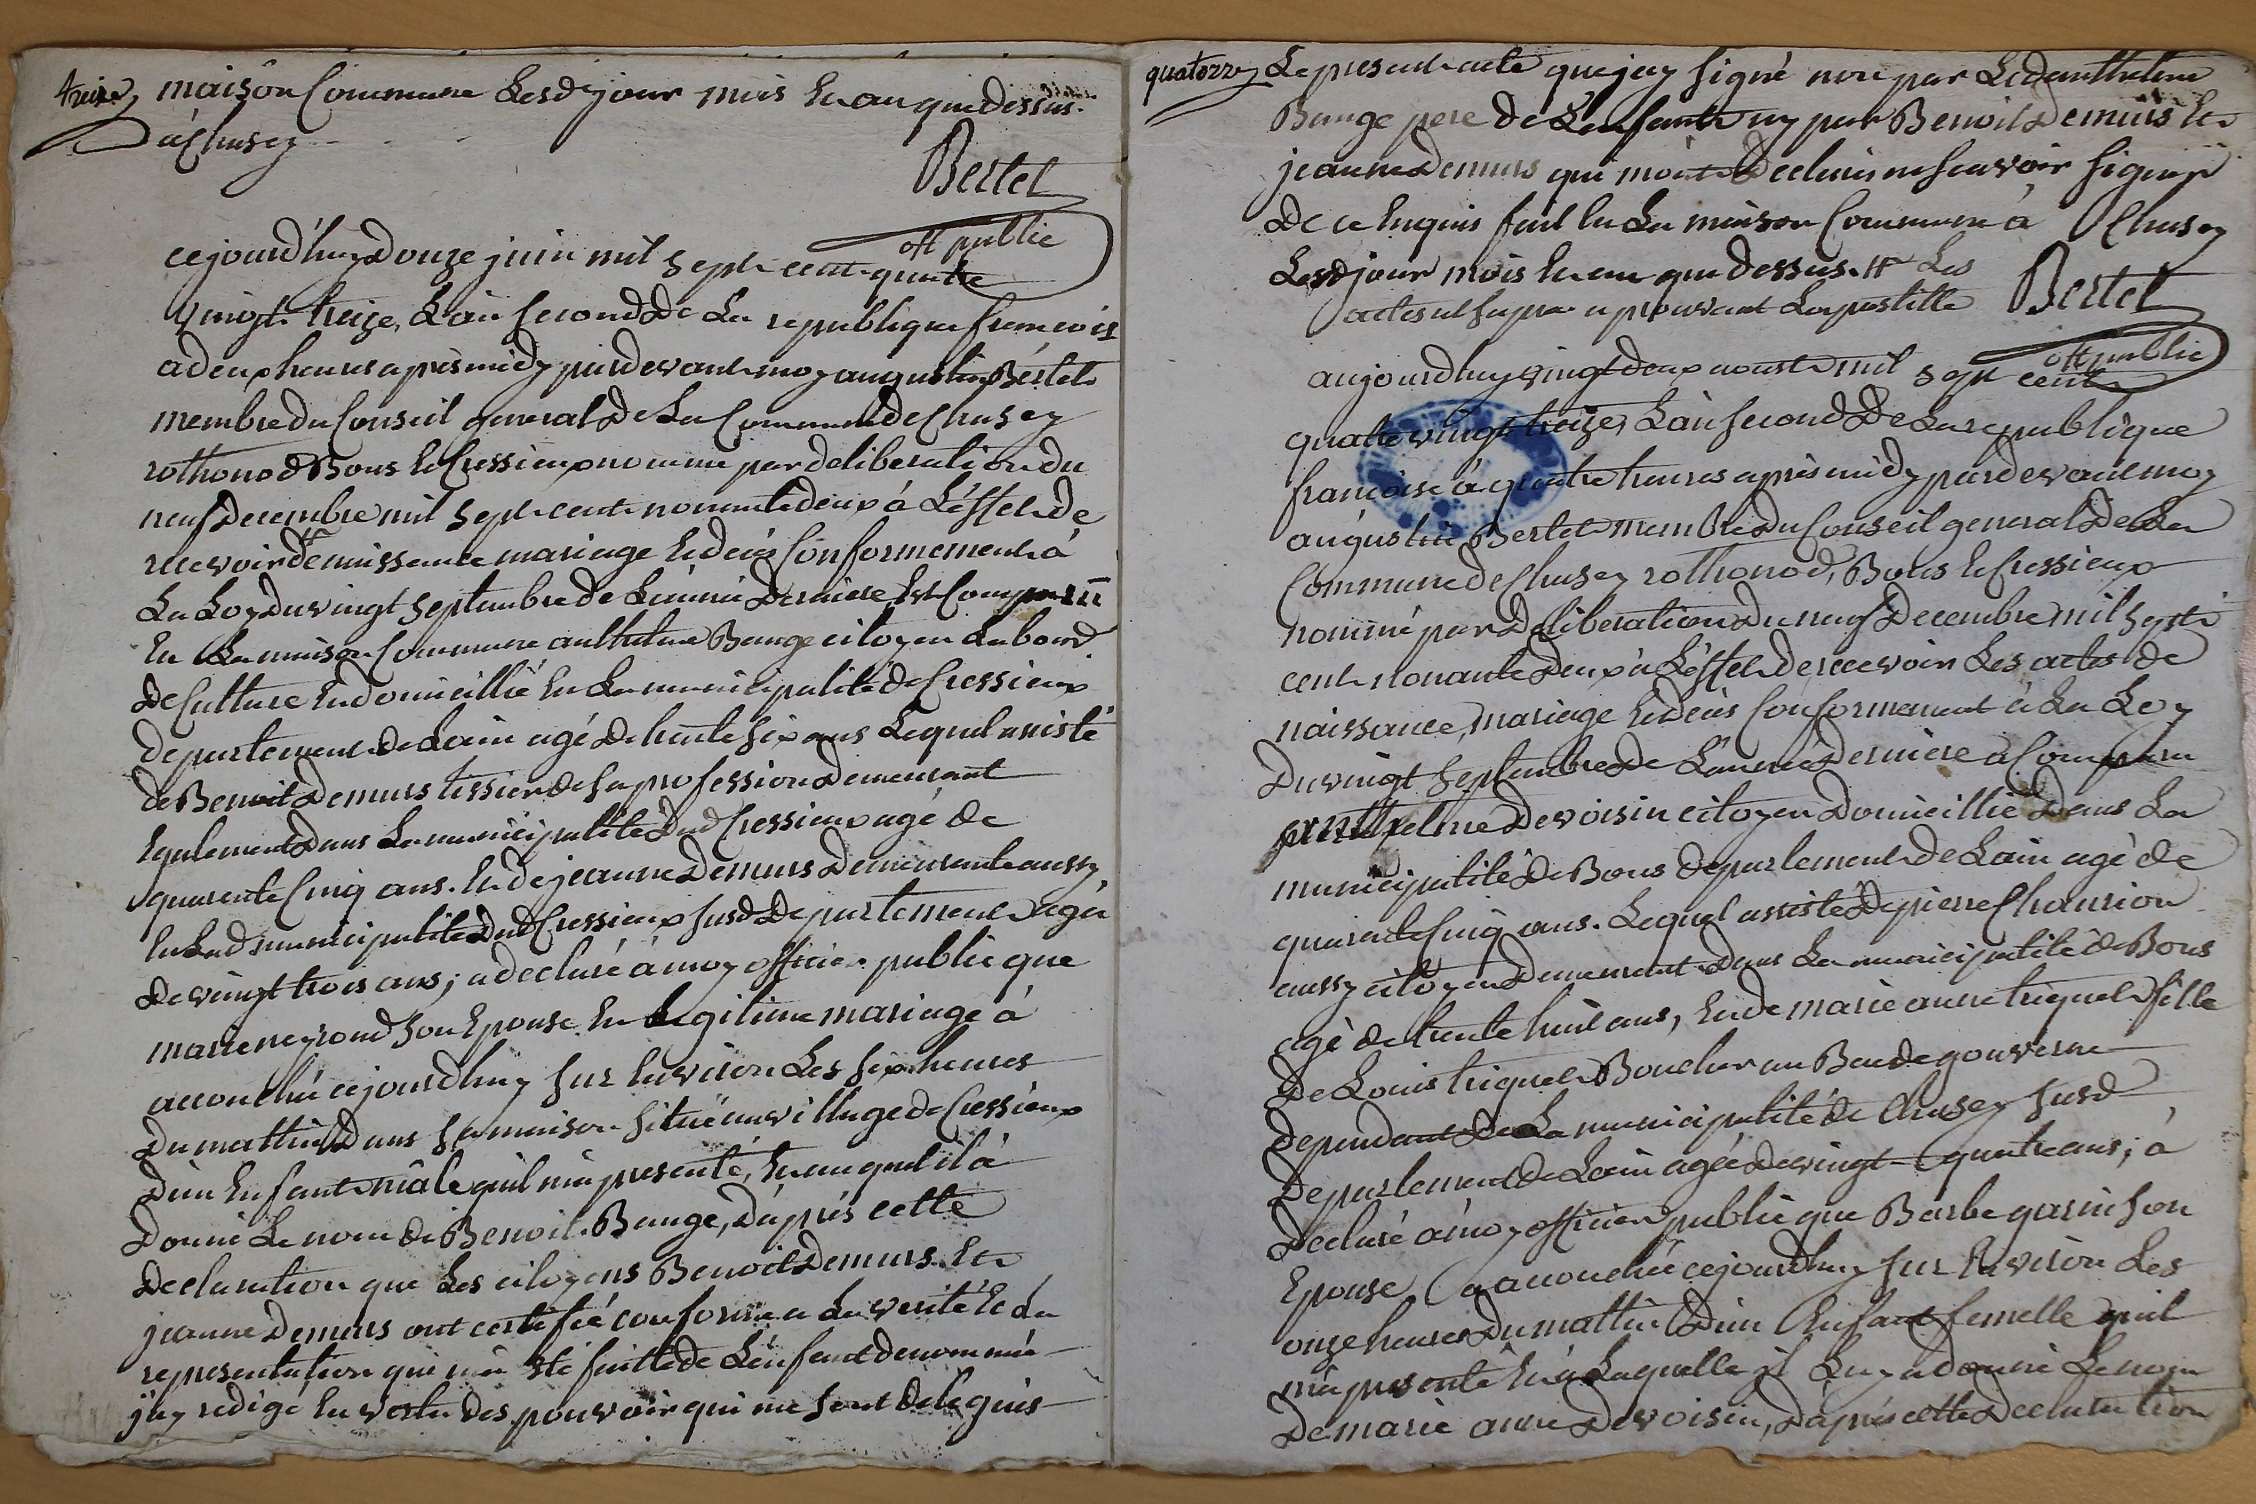 treize
maison Commune Lesd jour mois Et an que dessus.
à Chusey
Bertet
off public
cejourd'huy Douze juin mil sept cent quatre
vingt treize, L'an second De La republique francois
a deux heures apres midy pardevant moy augustin Bertet
membre du Conseil general De La Commune de Chusey
rothonod Bons Et Cressieux nommé par deliberation du
neuf Decembre mil sept cent nonante deux à L'effet de
recevoir # De naissance mariage Et deces Conformement à
La Loy du vingt septembre de L'année Derniere Est Comparu
En La maison Commune anthelme Bauge citoyen Labour
De Culture Et domicillié En La municipalité de Cressieux
departement de Lain agé De trente six ans Lequel assisté
de Benoit Demurs tissier de sa profession Demeurant
Egalement Dans La municipalité Dud Cressieux agé de
quarente Cinq ans. Et de jeanne Demurs Demeurante aussy
En Lad municipalité Dud Cressieux susd Departement agée
De vingt trois ans; a declaré à moy officier public que
marie neyroud son Epouse En Legitime mariage à
accouché cejourdhuy sur Environ Les six heures
Du mattin Dans sa maison situé au village de Cressieux
D'un Enfant mâle quil m'a presenté, Et auquel il à
Donné Le nom de Benoit Bauge, D'apres cette
Declaration que Les citoyens Benoit Demurs Et
jeanne Demurs ont certifiée conforme a La verité Et La
representation qui m'a été faitte de L'enfant denommé
j'ay redigé En vertu des pouvoir qui me sont delegués
quatorze
Le present acte que jay signé non par Led anthelme
Bauge pere de L'enfant ny par Benoit Demurs Et
jeanne Demurs qui m'ont Declaré ne sçavoir signer
De ce Enquis fait En La maison Commune à Chusey
Lesd jour mois Et an que dessus. # Les
actes ut supra aprouvant Lapostille
Bertet
off public
aujourdhuy vingt deux aoust mil sept cent
quatre vingt treize, L'an second De La republique
francoise à quatre heures apres midy pardevant moy
augustin Bertet membre du Conseil general De La
Commune de Chusey rothonod, Bons Et Cressieux
nommé par Deliberation Du neuf Decembre mil sept
cent nonante Deux à L'effet de recevoir Les actes de
naissance, mariage Et deces Conformement à La Loy
Du vingt septembre De L'année Derniere a Comparu
anthelme Devoisin citoyen Domicillié Dans La
municipalité De Bons departement de Lain agé de
quarente Cinq ans. Lequel assisté De pierre
aussy citoyen Demeurant Dans La municipalité de Bons
agé de trente huit ans, Et de marie anne triquet fille
De Louis triquet Boucher au de gouverne
Dependant De La municipalité de Chusey susd
Departement de Lain agée De vingt quatre ans; à
Declaré à moy officier public que Barbe garin son
Epouse a accouchée cejourdhuy sur Environ Les
onze heures Du mattin D'un Enfant femelle quil
m'a presenté Et à Laquelle il Luy a donné Le nom
De marie anne Devoisin, D'apres cette Declaration